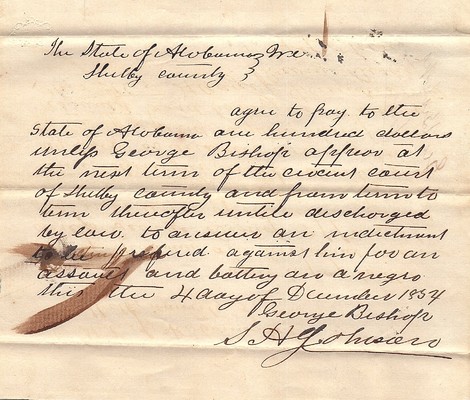 The State of Alabama } We
Shelby County }
agree to pay to the
State of Alabama one hundred dollars
unless George Bishop appear at
the next term of the circuit court
of Shelby county and from term to
term thereafter untile discharged
by law to answer an indictment
to be prefered against him for an
assault and battery on a negro
this the 4 day of December 1834
George Bishop
S H Johnson